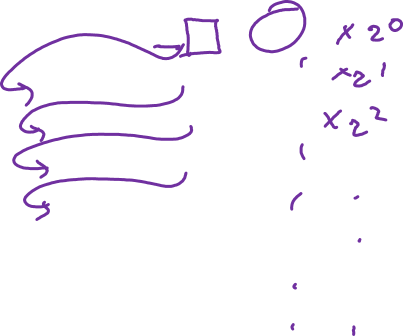 × 2⁰
× 2¹
× 2²